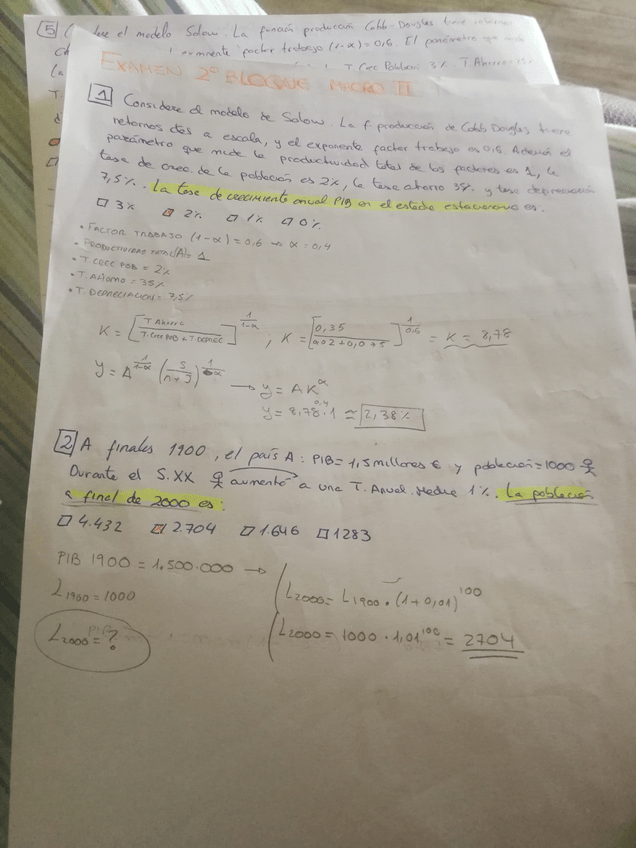 5
el modelo Solow. La función producción Cobb-Douglas tiene retornos
factor trabajo (1-α) = 0,6. El parámetro que mide
T. Crec Población 3%. T. Ahorro
EXAMEN 2º BLOQUE MACRO II
1 Considere el modelo de Solow. La f producción de Cobb Douglas tiene
retornos ctes a escala, y el exponente factor trabajo es 0,6. Además el
parámetro que mide la productividad total de los factores es 1, la
tasa de crec. de la población es 2%, la tasa ahorro 35% y tasa depreciación
7,5%. La tasa de crecimiento anual PIB en el estado estacionario es:
□ 3% □ 2% □ 1% □ 0%
• FACTOR TRABAJO (1-α) = 0,6 → α = 0,4
• PRODUCTIVIDAD TOTAL(A)= 1
• T CREC POB = 2%
• T. AHORRO = 35%
• T. DEPRECIACION = 7,5%
K = [T AHORRO / T. CREC POB + T. DEPREC]^(1/1-α), K = [0,35 / 0,02+0,0+5]^(1/0,6) = K = 8,78
y = A^(1/1-α) (s/n+δ)^(1/α) → y = AK^α
y = 8,78^0,4 · 1 ≃ 2,38%
2 A finales 1900, el país A: PIB= 1,5 millones € y población = 1000
Durante el S. XX aumentó a una T. Anual. Media 1%. La población
a final de 2000 es:
□ 4.432 □ 2.704 □ 1.646 □ 1283
PIB 1900 = 1.500.000 →
L2000 = L1900 · (1+0,01)^100
L1900 = 1000
L2000 = 1000 · 1,01^100 = 2704
L2000 = ?